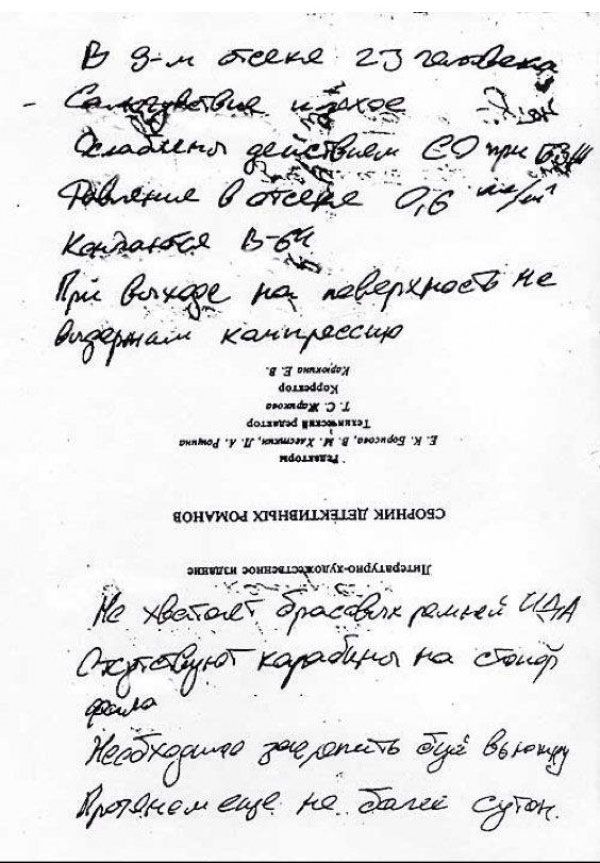 В 9-м отсеке 23 человека
- Самочувствие плохое
Ослаблены действием СО при БЗЖ
Давление в отсеке 0,6 кг/см²
Кончаются В-64
При выходе на поверхность не
выдержим компрессию
Литературно-художественное издание
СБОРНИК ДЕТЕКТИВНЫХ РОМАНОВ
Редакторы
Е. К. Борисова, В. М. Хвесткин, Л. А. Рощина
Технический редактор
Т. С. Жарикова
Корректор
Карюкина Е. В.
Не хватает брасовых ремней ИДА
Отсутствуют карабины на стопор
фала
Необходимо закрепить буй вьюшку
Протянем еще не более суток.